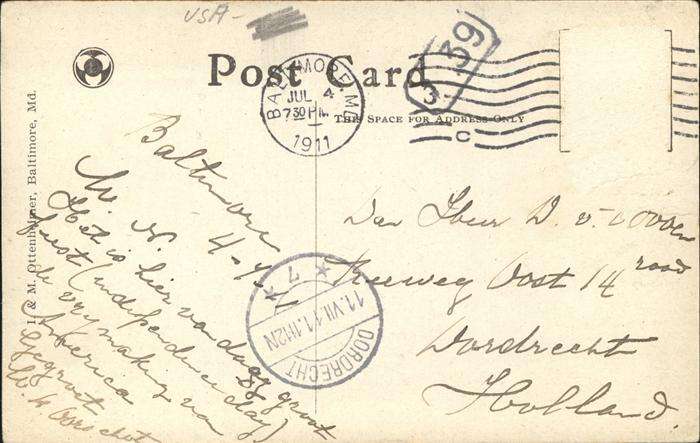 USA-
Post Card
BALTIMORE, MD.
JUL 4
7 30 PM
1911
3 39
C
THIS SPACE FOR ADDRESS ONLY
I. & M. Ottenheimer, Baltimore, Md.
Baltimore
4-7-11
M. N.
Het is hier vandaag groot
feest (independence day)
de vrymaking van
America
Gegroet
Den Heer D. v.
weg Oost 14 rood
Dordrecht
Holland.
DORDRECHT
11.VII.11.11-12N
7